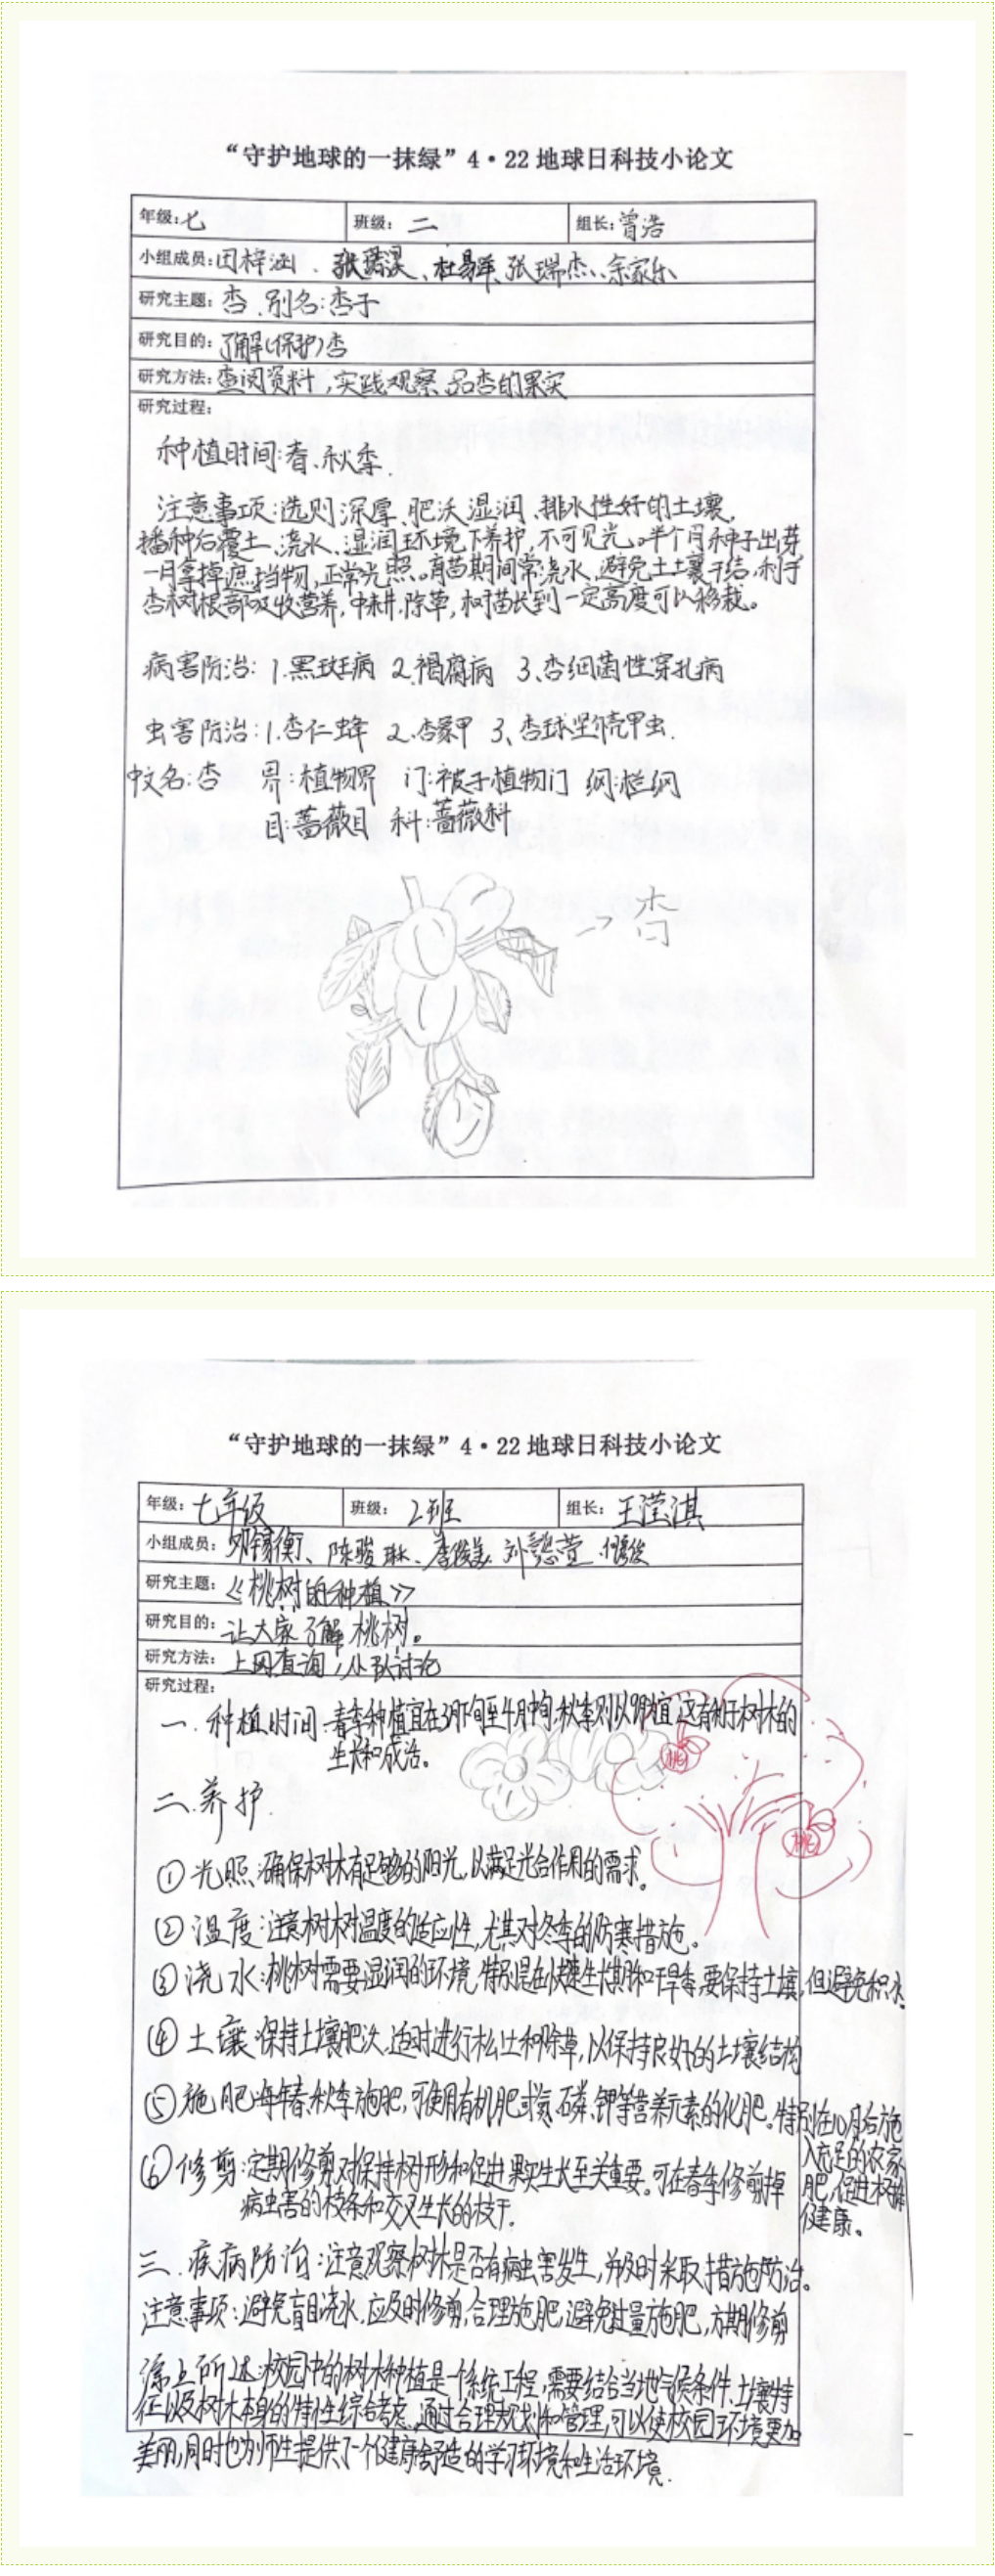 “守护地球的一抹绿”4·22地球日科技小论文
年级:七 班级: 二 组长:曾浩
小组成员:田梓涵、张昊、杜易洋、张瑞杰、余家乐
研究主题:杏、别名:杏子
研究目的:了解(保护)杏
研究方法:查阅资料,实践观察,品杏的果实
研究过程:
种植时间:春、秋季.
注意事项:选则深厚、肥沃湿润、排水性好的土壤,
播种后覆土、浇水、湿润环境下养护,不可见光。半个月种子出芽
一月拿掉遮挡物,正常光照。育苗期间常浇水,避免土壤干结,利于
杏树根部吸收营养,中耕除草,树苗长到一定高度可以移栽。
病害防治: 1.黑斑病 2.褐腐病 3.杏细菌性穿孔病
虫害防治:1.杏仁蜂 2.杏象甲 3、杏球坚壳甲虫.
中文名:杏 界:植物界 门:被子植物门 纲: 纲
目:蔷薇目 科:蔷薇科
→杏
“守护地球的一抹绿”4·22地球日科技小论文
年级:七年级 班级: 2班 组长: 王滢淇
小组成员: 邓锦衡、陈骏琳、李俊美、刘慧萱
研究主题:《桃树的种植》
研究目的:让大家了解桃树。
研究方法:上网查询,小队讨论
研究过程:
一.种植时间:春季种植宜在3月下旬至4月中旬,秋季则以9月植宜,这有利于树木的
生长和成活。
桃
二.养护.
桃
①光照:确保树木有足够的阳光,以满足光合作用的需求。
②温度:注意树木对温度的适应性,尤其对冬季的防寒措施。
③浇水:桃树需要湿润的环境,特别是在快速生长期和干旱季,要保持土壤,但避免积水.
④土壤:保持土壤肥沃,适时进行松土和除草,以保持良好的土壤结构
⑤施肥:每年春、秋季施肥,可使用有机肥或氮、磷、钾等营养元素的化肥。特别在10月后施
入充足的农家
肥,促进树
健康。
⑥修剪:定期修剪对保持树形和促进果实生长至关重要。可在春季修剪掉
病虫害的枝条和交叉生长的枝干.
三.疾病防治:注意观察树木是否有病虫害发生,并及时采取措施防治。
注意事项:避免盲目浇水,应及时修剪,合理施肥,避免过量施肥,定期修剪
综上所述:校园中的树木种植是一个系统工程,需要结合当地气候条件、土壤特
征以及树木本身的特性综合考虑,通过合理规划和管理,可以使校园环境更加
美丽,同时也为师生提供了一个健康舒适的学习环境和生活环境.